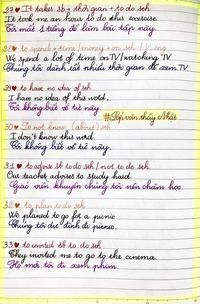 27 ♥ It takes sb + thời gian + to do sth
It took me an hour to do this exercise.
Tôi mất 1 tiếng để làm bài tập này.
28 ♥ to spend + time / money + on sth / V_ing
We spend a lot of time on TV / watching TV
Chúng tôi dành rất nhiều thời gian để xem TV
29 ♥ to have no idea of sth
I have no idea of this word,
Tôi không biết về từ này.
30 ♥ To not know (about) sth
I don't know this word.
Tôi không biết về từ này.
31 ♥ to advise sb to do sth / not to do sth
Our teacher advises to study hard
Giáo viên khuyên chúng tôi nên chăm học.
32 ♥ to plan to do sth
We planed to go for a picnic
Chúng tôi dự định đi picnic.
33 ♥ to invited sb to do sth
They invited me to go to the cinema.
Họ mời tôi đi xem phim.